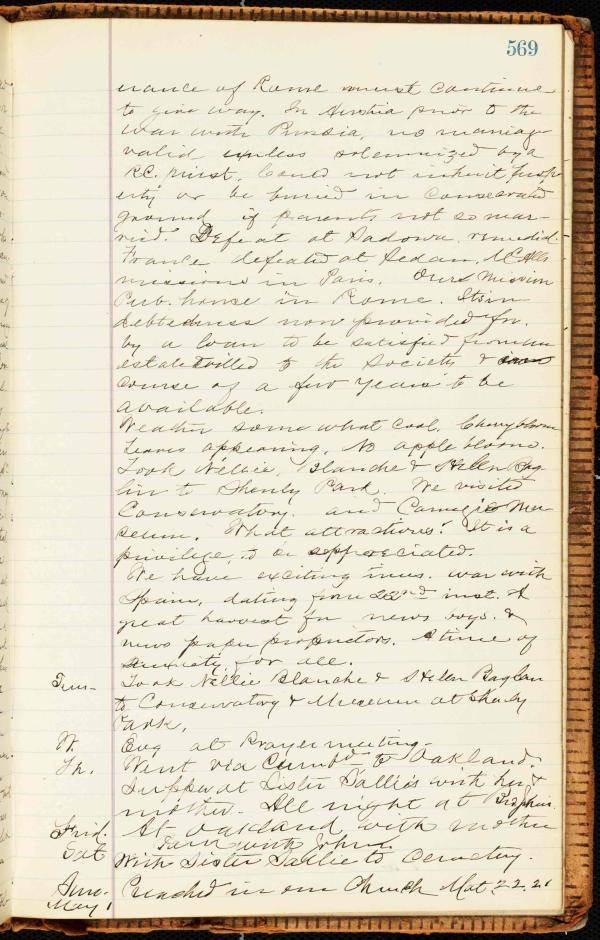 569
erance of Rome must continue
to give way. In Austria prior to the
war with Prussia, no marriage
valid unless solemnized by a
R.C. Priest. Could not inherit prop
erty or be buried in consecrated
ground if parents not so mar-
ried. Defeat at Sadowa remedied.
France defeated at Sedan. McAlls
missions in Paris. Our Mission
Pub. house in Rome. Its in
debtedness now provided for
by a loan to be satisfied from an
estate willed to the Society &
course of a few years to be
available.
Weather some what cool. Cherry bloom
Leaves appearing. No apple bloom.
Took Nellie, Blanche & Helen Bag
lin to Shenly Park. We visited
Conservatory and Carnegie Mu
seum. What attractions! It is a
privilege to be appreciated.
We have exciting times. War with
Spain, dating from 22nd inst. A
great harvest for news boys &
news paper proprietors. A time of
anxiety for all.
Tues- Took Nellie Blanche & Helen Baglin
to Conservatory & Museum at Shenly
Park.
W. Evg at Prayer meeting.
Th. Went via Cumbd to Oakland.
Supper at Sister Sallie's with her &
mother. All night at
Frid. At Oakland with mother
Farm with John.
Sat With Sister Sallie to Cemetery.
May 1 Preached in our Church Mat 22.21